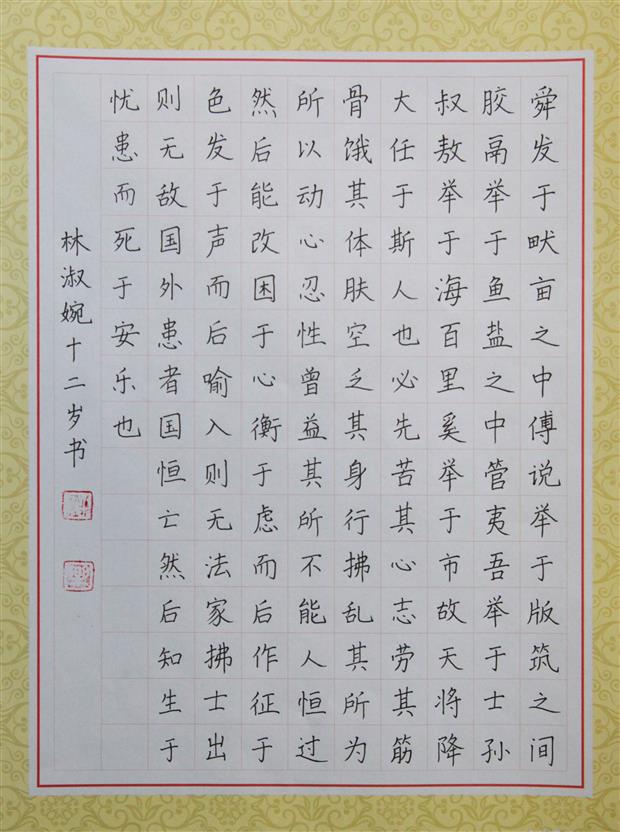 舜发于畎亩之中傅说举于版筑之间
胶鬲举于鱼盐之中管夷吾举于士孙
叔敖举于海百里奚举于市故天将降
大任于斯人也必先苦其心志劳其筋
骨饿其体肤空乏其身行拂乱其所为
所以动心忍性曾益其所不能人恒过
然后能改困于心衡于虑而后作征于
色发于声而后喻入则无法家拂士出
则无敌国外患者国恒亡然后知生于
忧患而死于安乐也
林淑婉十二岁书